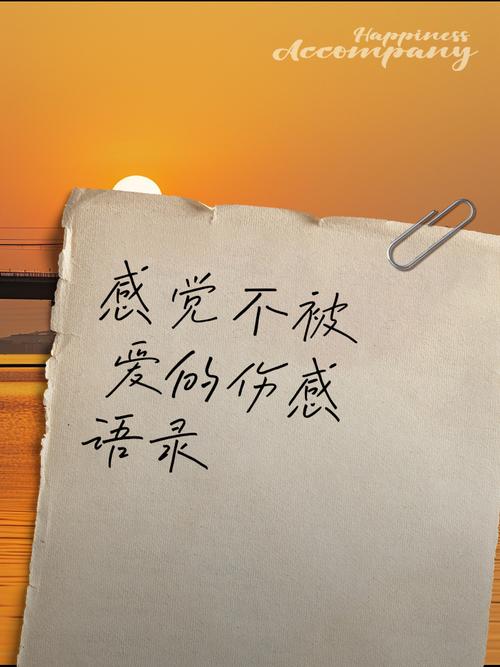 Happiness
Accompany
感觉不被
爱的伤感
语录